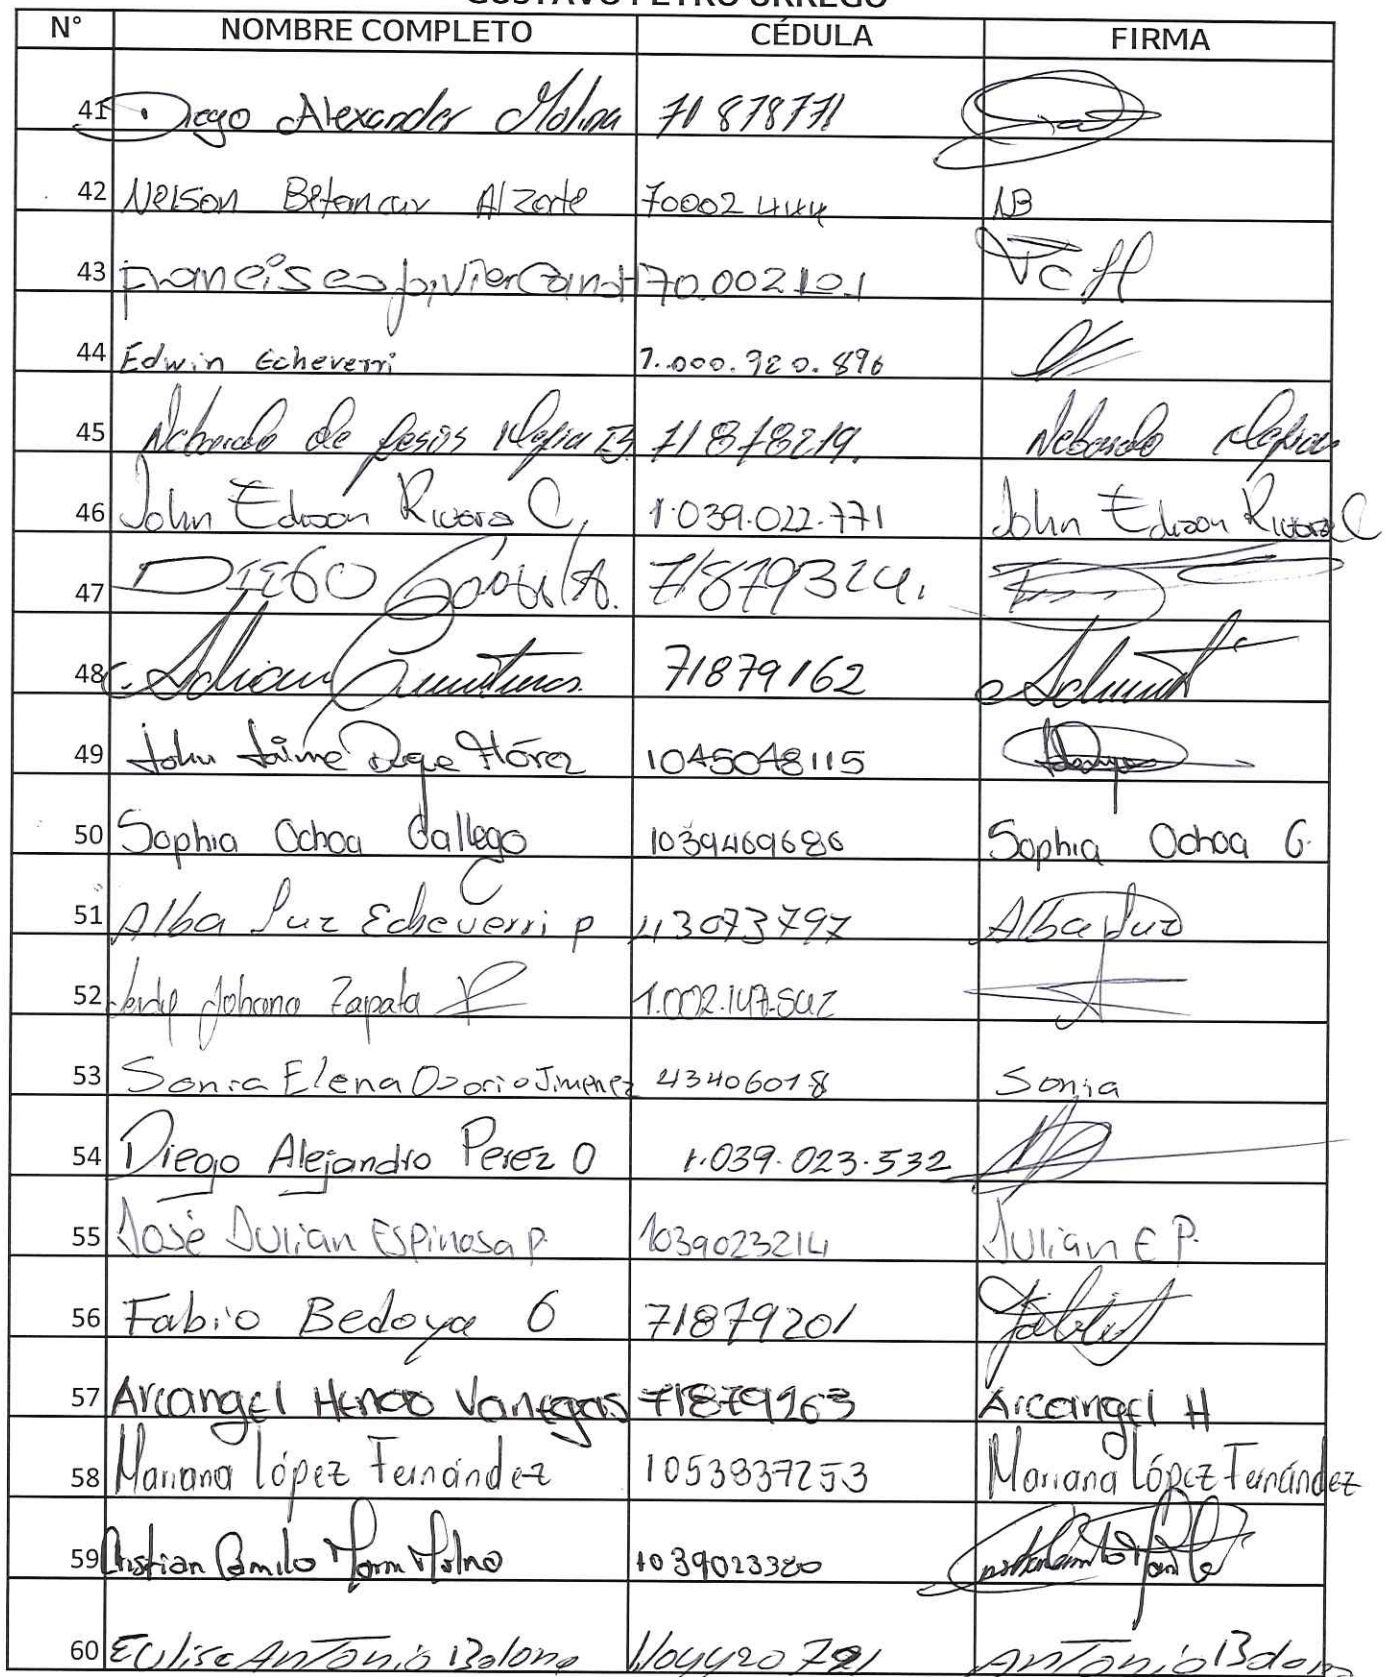 GUSTAVO PETRO URREGO
N° NOMBRE COMPLETO CÉDULA FIRMA
41 Diego Alexander Molina 71878771
42 Nelson Betancur Alzate 70002444 NB
43 Francisco Javier 70.002101 FCH
44 Edwin Echeverri 1.000.920.896
45 de Jesús Mejia B. 71878219.
46 John Edison Rivera C, 1.039.022.771 John Edison Rivera C
47 DIEGO 71879324.
48 Adrian 71879162
49 John Jaime Flórez 1045048115
50 Sophia Ochoa Gallego 1039469686 Sophia Ochoa G.
51 Alba Luz Echeverri p 43073797 Alba Luz
52 Johana Zapata 1.002.147.542
53 Sonia Elena Osorio Jimenez 43406018 Sonia
54 Diego Alejandro Perez O 1.039.023.532
55 José Julian Espinosa P. 1039023214 Julian E P.
56 Fabio Bedoya O 71879201
57 Arcangel Henao Vanegas 71879263 Arcangel H
58 Mariana López Fernández 1053837253 Mariana López Fernández
59 Cristian Camilo 1039023380
60 Antonio Antonio